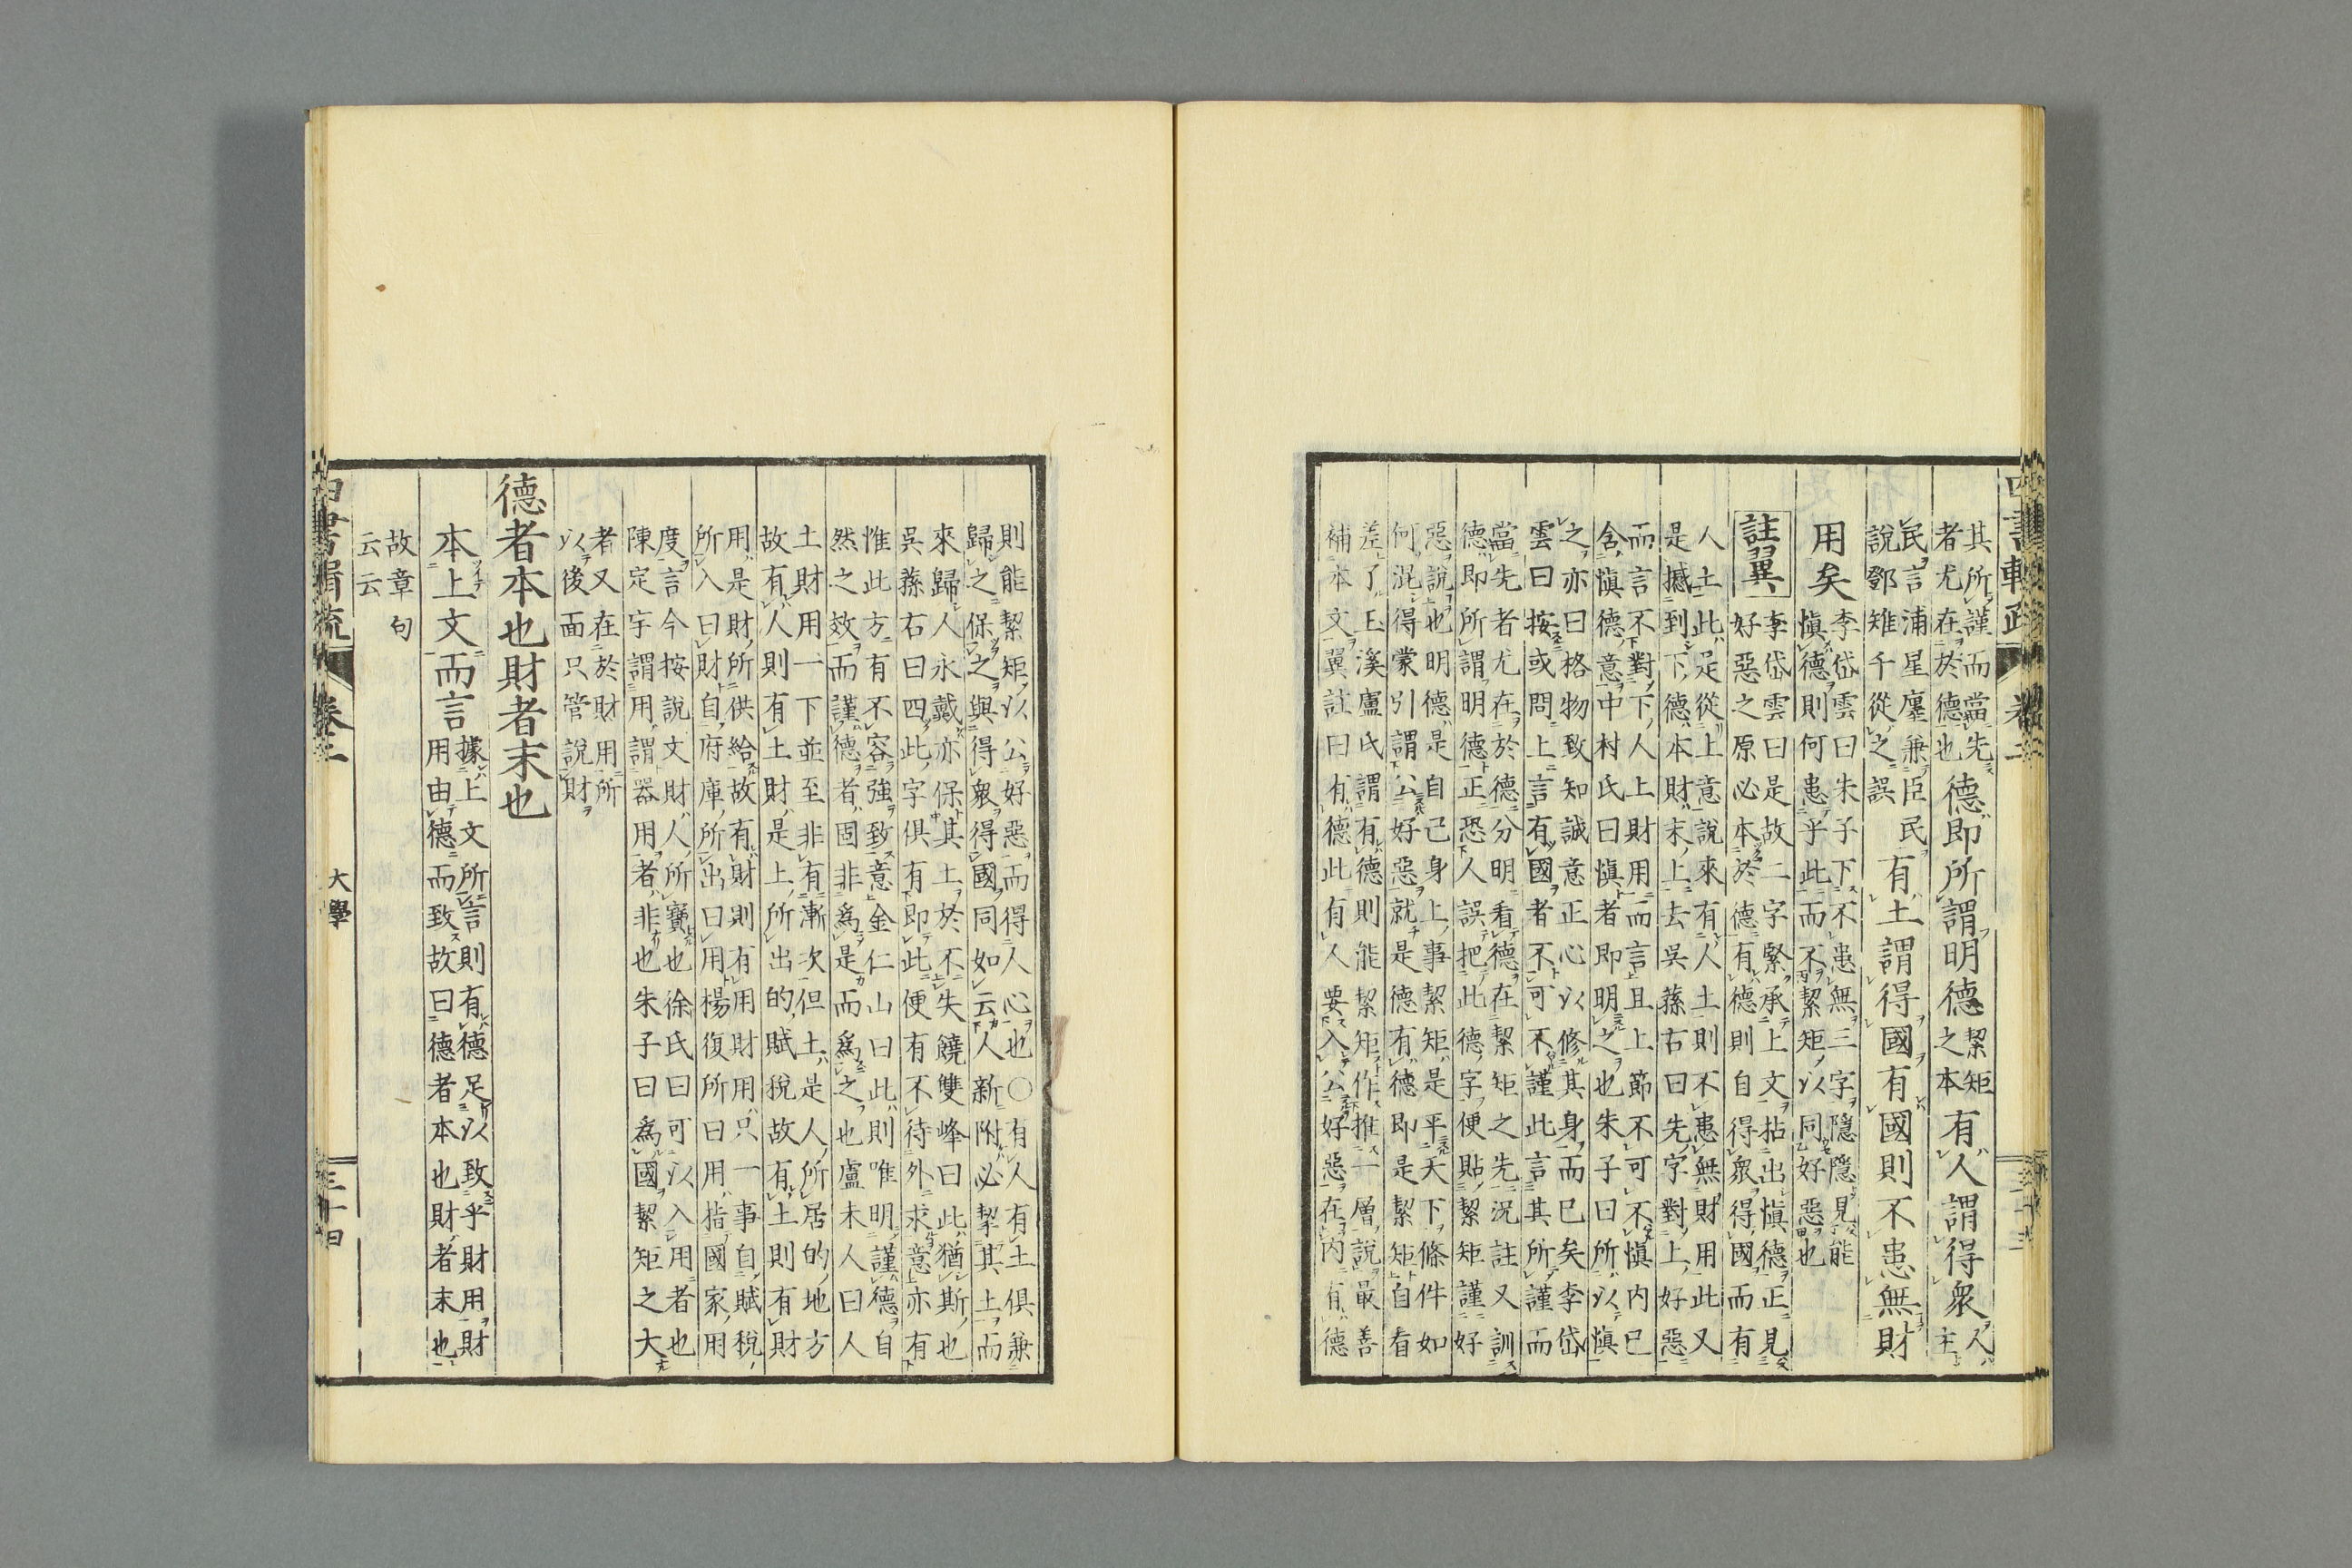 四書輯疏 卷二
其所謹而當先
者尤在於德也
德即所謂明德
絜矩
之本
有人謂得衆
人
主
民言浦星廛兼臣民
說鄧雉千從之誤
有土謂得國有國則不患無財
用矣
李岱雲曰朱子下不患無三字隱隱見能
愼德則何患乎此而不絜矩以同好惡也
註翼
李岱雲曰是故二字緊承上文拈出愼德正見
好惡之原必本於德有德則自得衆得國而有
人土此足從上意說來有人土則不患無財用此又
是撼到下德本財末上去吳蓀右曰先字對上好惡
而言不對下人上財用而言且上節不可不愼內已
含愼德意中村氏曰愼者即明之也朱子曰所以愼
之亦曰格物致知誠意正心以修其身而已矣李岱
雲曰按或問上言有國者不可不謹此言其所謹而
當先者尤在於德分明看德在絜矩之先況註又訓
德即所謂明德正恐人誤把此德字便貼絜矩謹好
惡說也明德是自己身上事絜矩是平天下條件如
何混得蒙引謂公好惡就是德有德即是絜矩自看
差了玉溪盧氏謂有德則能絜矩作推一層說最善
補本文翼註曰有德此有人要入公好惡在內有德
則能絜矩以公好惡而得人心也〇有人有土俱兼
歸之保之與得衆得國同如云人新附必挈其土而
來歸人永戴亦保其土於不失饒雙峰曰此猶斯也
吳蓀右曰四此字俱有即此便有不待外求意亦有
惟此方有不容強致意金仁山曰此則唯明謹德自
然之效而謹德者固非爲是而爲之也盧未人曰人
土財用一下並至非有漸次但土是人所居的地方
故有人則有土財是上所出的賦稅故有土則有財
用是財所供給故有財則有用財用只一事自賦稅
所入曰財自府庫所出曰用楊復所曰用指國家用
度言今按說文財人所寶也徐氏曰可以入用者也
陳定宇謂用謂器用者非也朱子曰爲國絜矩之大
者又在於財用所
以後面只管說財
德者本也財者末也
本上文而言
據上文所言則有德足以致乎財用財
用由德而致故曰德者本也財者末也
故章句
云云
四書輯疏 卷二 大學 三十四